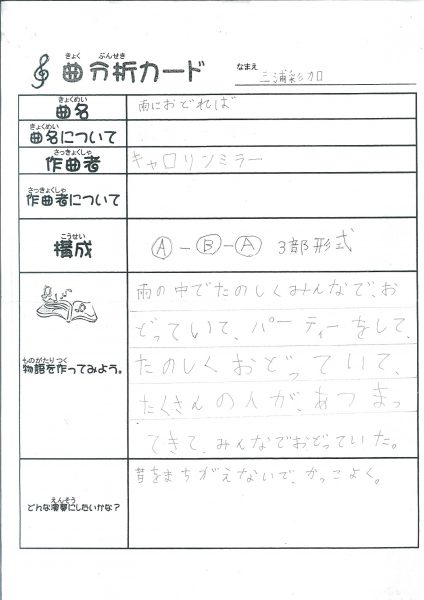 きょく ぶんせき
曲分析カード
なまえ
三浦彩加
きょくめい
曲名
雨におどれば
きょくめい
曲名について
さっきょくしゃ
作曲者
キャロリンミラー
さっきょくしゃ
作曲者について
こうせい
構成
Ⓐ－Ⓑ－Ⓐ 3部形式
ものがたり つく
物語を作ってみよう。
雨の中でたのしくみんなで、お
どっていて、パーティーをして、
たのしくおどっていて、
たくさんの人が、あつまっ
てきて、みんなでおどっていた。
えんそう
どんな演奏にしたいかな?
音をまちがえないで、かっこよく。